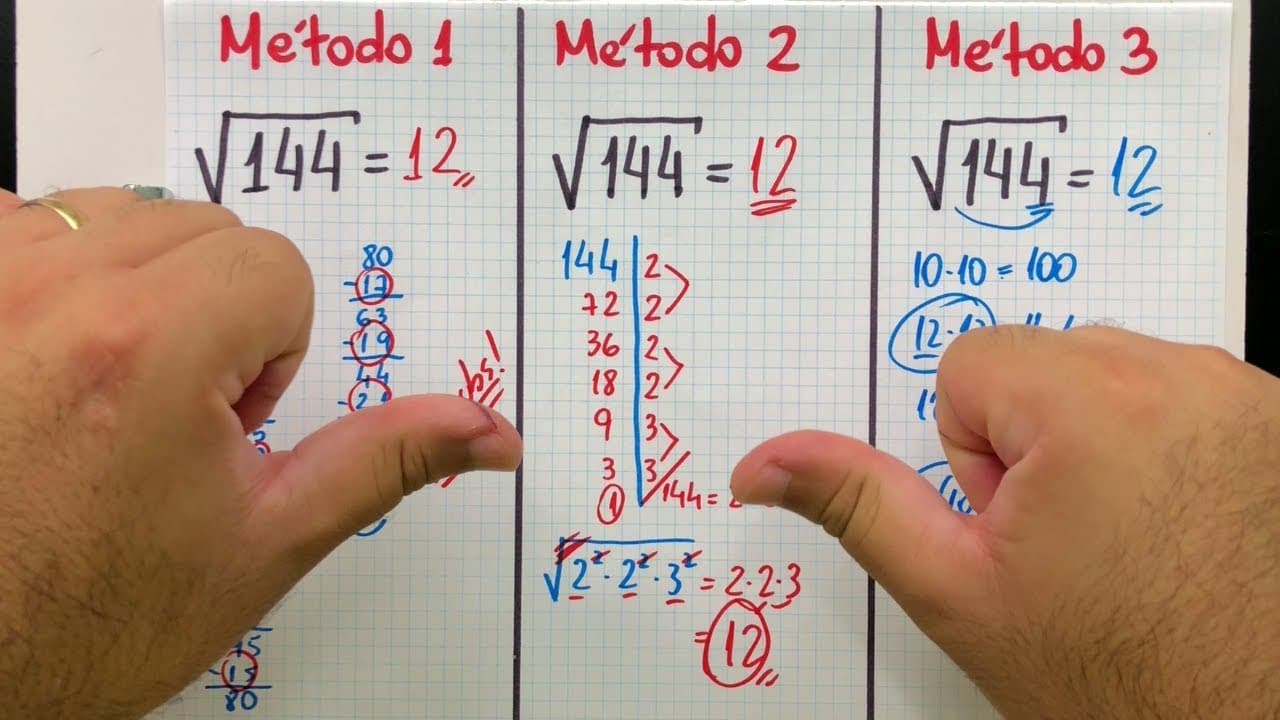 Método 1
√144 = 12
80
-17
63
-19
44
15
80
Método 2
√144 = 12
144 | 2
72 | 2
36 | 2
18 | 2
9 | 3
3 | 3
1
144 =
√2²·2²·3² = 2·2·3
= 12
Método 3
√144 = 12
10·10 = 100